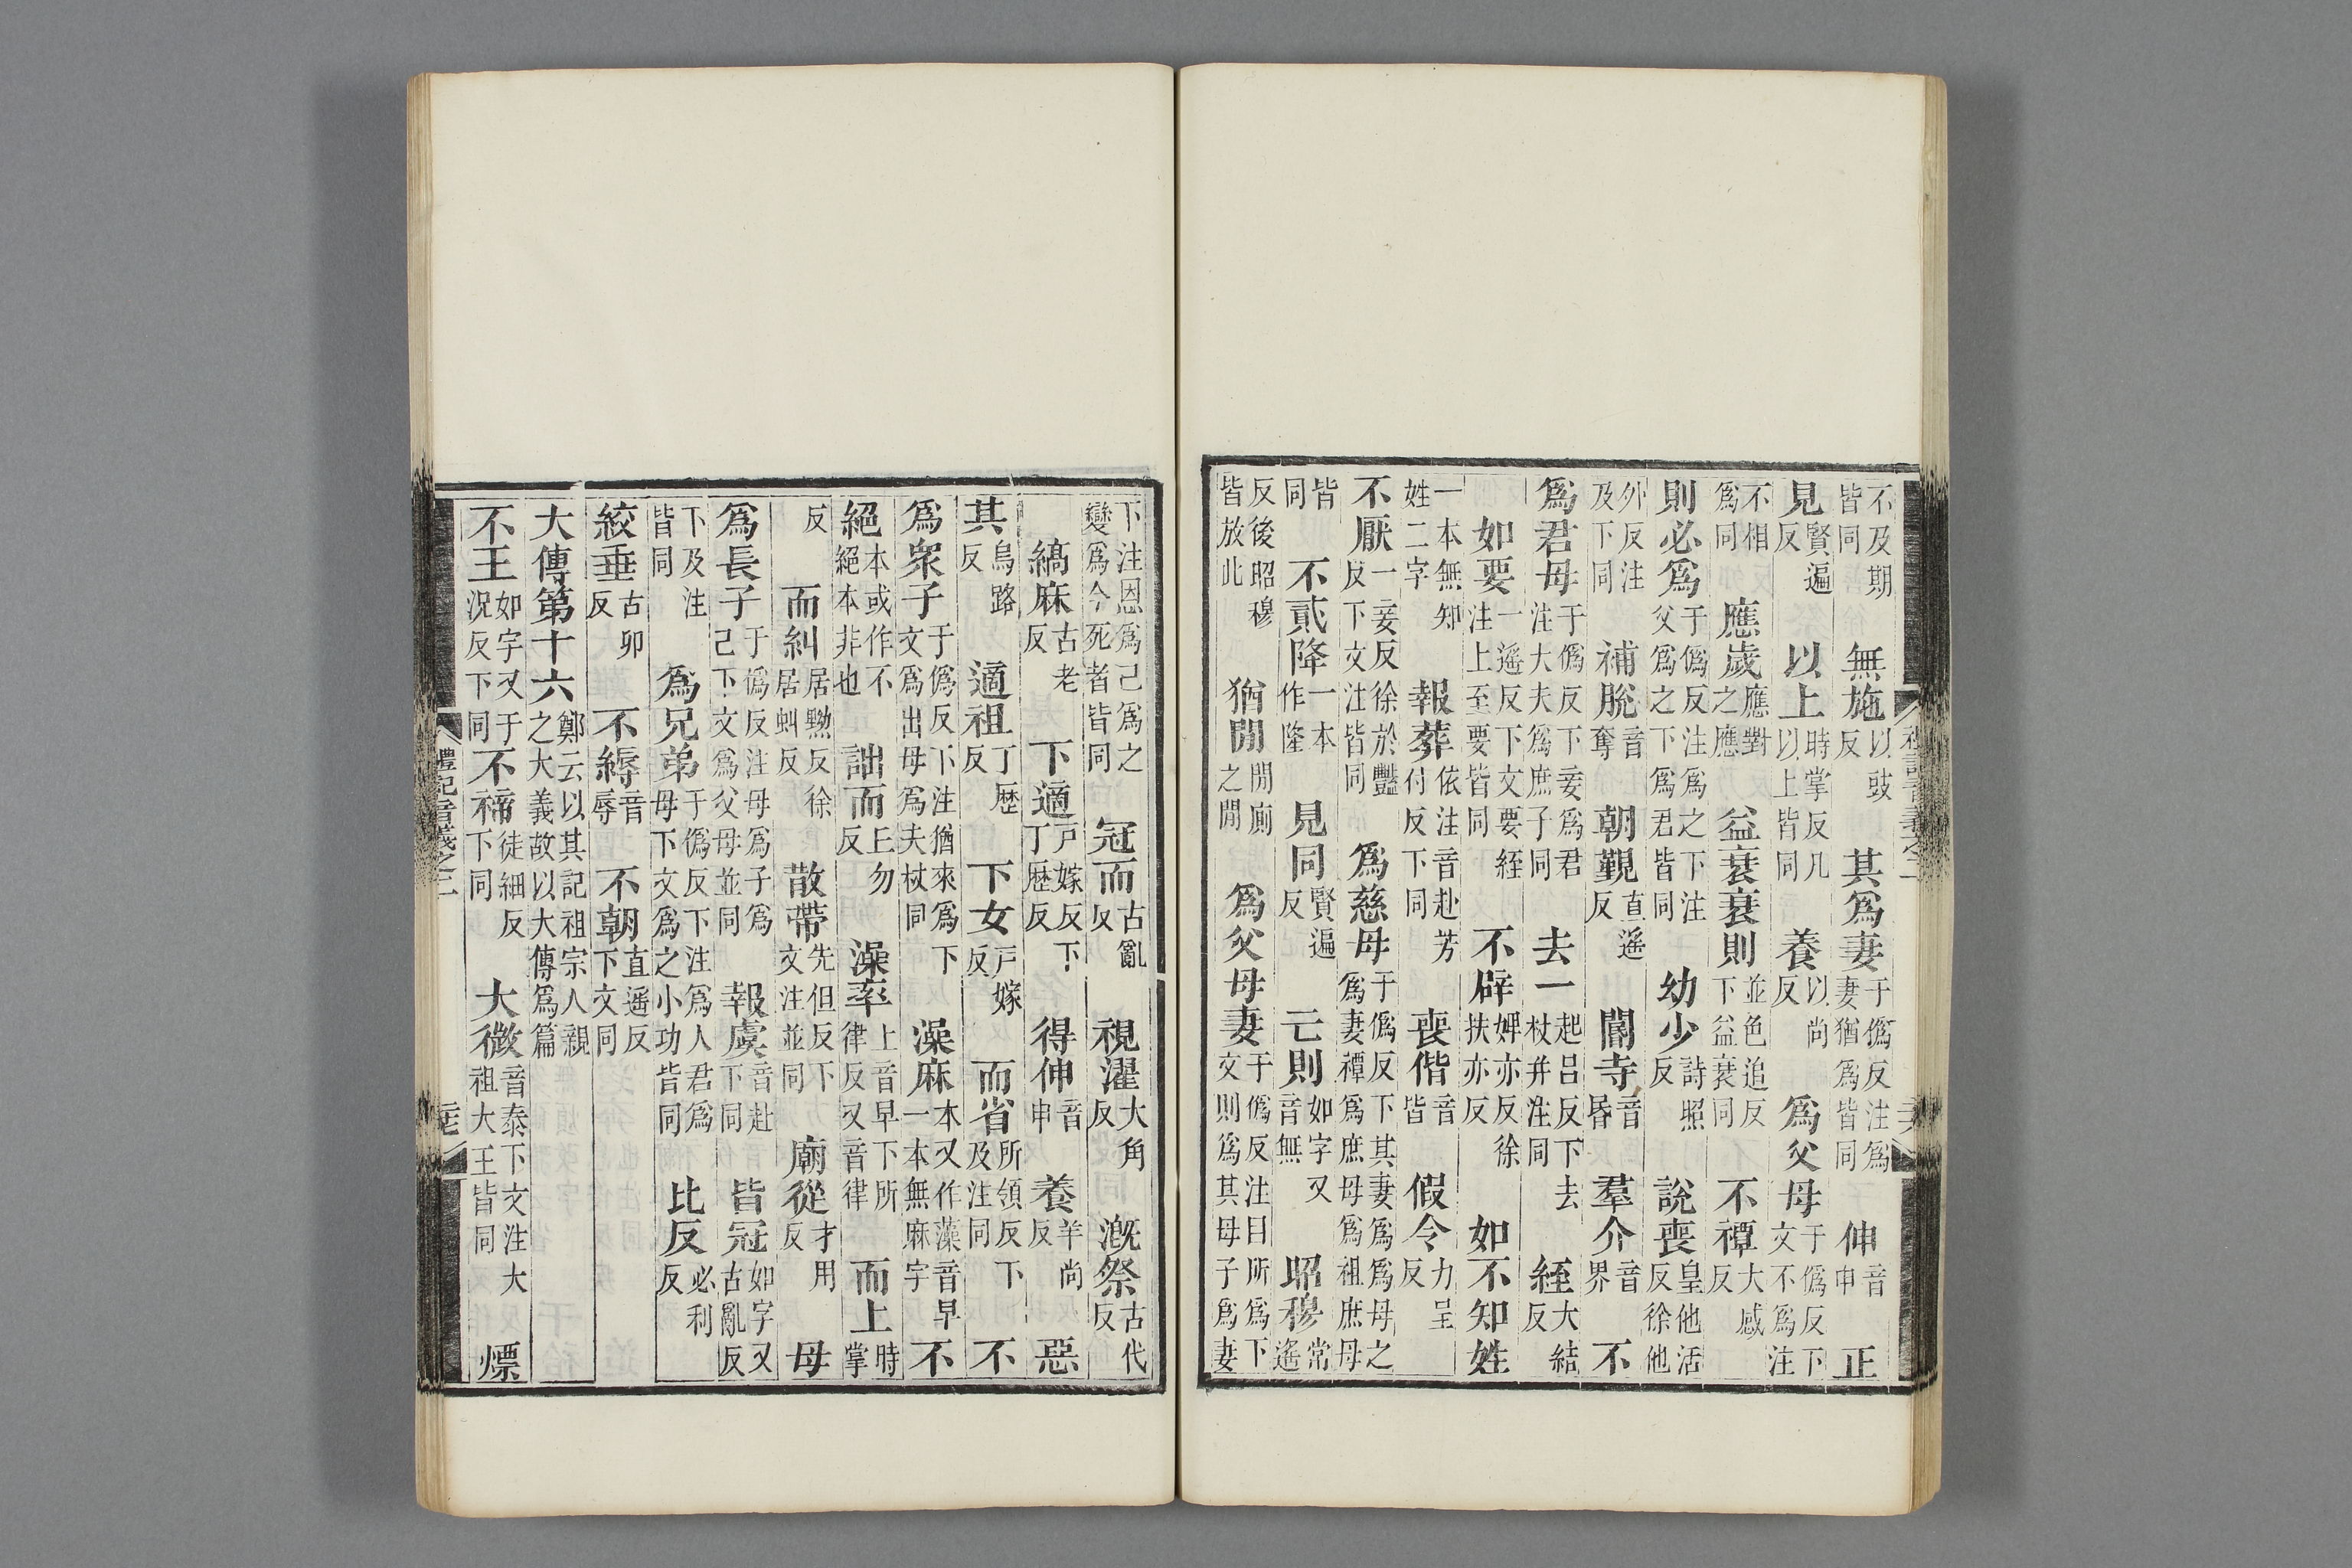 不及期皆同　無施以豉反　其為妻于偽反注為妻猶為皆同　伸音申　正
見賢遍反　以上時掌反凡以上皆同　養以尚反　為父母于偽反下文不為注
不相為同　應歲應對之應　益衰衰則並色追反下益衰同　不禫大感反
則必為于偽反注為之下注父為之下為君皆同　幼少詩照反　說喪皇他活反徐他
外反注及下同　補脫音奪　朝覲直遥反　閽寺音昏　羣介音界　不
為君母于偽反下妾為君注大夫為庶子同　去一起呂反下去杖并注同　絰大結反
如要一遥反下文要絰注上至要皆同　不辟婢亦反徐扶亦反　如不知姓
一本無知姓二字　報葬依注音赴芳付反下同　喪偕音皆　假令力呈反
不厭一妾反徐於豔反下文注皆同　為慈母于偽反下其妻為為母之為妻禫為庶母為祖庶母
皆同　不貳降一本作隆　見同賢遍反　亡則如字又音無　昭穆常遥
反後昭穆皆放此　猶閒閒廁之閒　為父母妻于偽反注目所為下文則為其母子為妻
禮記音義之二
下注恩為己為之變為今死者皆同　冠而古亂反　視濯大角反　溉祭古代反
縞麻古老反　下適戶嫁反下丁歷反　得伸音申　養羊尚反　惡
其烏路反　適祖丁歷反　下女戶嫁反　而省所領反下及注同　不
為眾子于偽反下注猶來為下文為出母為夫杖同　澡麻本又作藻音早一本無麻字　不
絕本或作不絕本非也　詘而丘勿反　澡率上音早下所律反又音律　而上時掌
反　而糾居黝反徐居虯反　散帶先但反下文注並同　廟從才用反　母
為長子于偽反注母為子為己下文為父母並同　報虞音赴下同　皆冠如字又古亂反
下及注皆同　為兄弟于偽反下注為人君為母下文為之小功皆同　比反必利反
絞垂古卯反　不縟音辱　不朝直遥反下文同
大傳第十六鄭云以其記祖宗人親之大義故以大傳為篇
不王如字又于況反下同　不禘徒細反下同　大微音泰下文注大祖大王皆同　熛
禮記音義之二